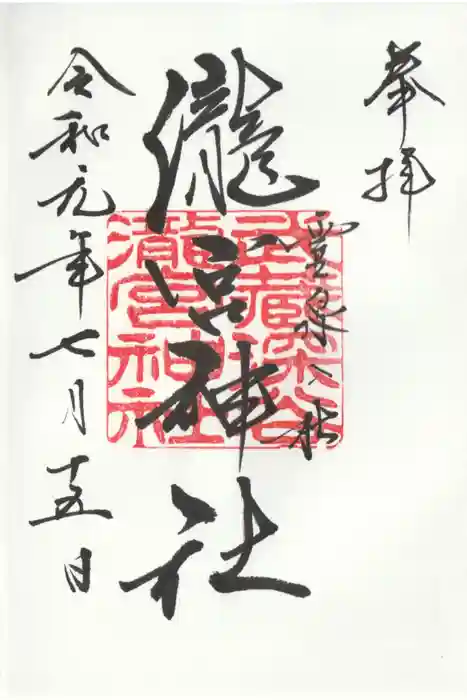 奉拝
靈泉 杜
瀧宮神社
武蔵深谷
瀧宮神社
令和元年七月十五日